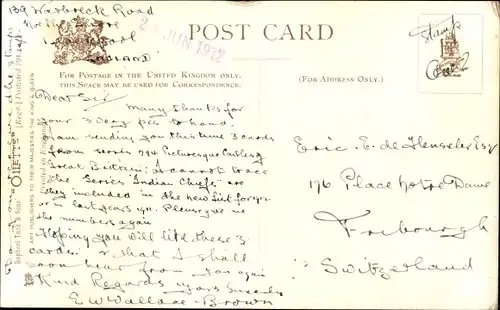 139 Westbreck Road
ENGLAND
2 JUN 1912
POST CARD
Stamp
FOR POSTAGE IN THE UNITED KINGDOM ONLY,
THIS SPACE MAY BE USED FOR CORRESPONDENCE.
(FOR ADDRESS ONLY.)
Dear Sir
Many thanks for
your 3 very to hand.
I am sending you this time 3 cards
from series 994 Picturesque Castles of
Great Britain. I cannot trace
the Series "Indian Chiefs" are
they included in the new list for 1912
or in last years 1911. Please give me
the numbers again
Hoping you will like these 3
cards & that I shall
soon hear from you again
Kind Regards yours Sincerely
E W Wallace-Brown
Eric. E. de Henseler Esq
176 Place Notre Dame
Fribourgh
Switzerland
Raphael Tuck & Sons' "OILETTE" [Regd.] Postcard 794
ART PUBLISHERS TO THEIR MAJESTIES THE KING & QUEEN